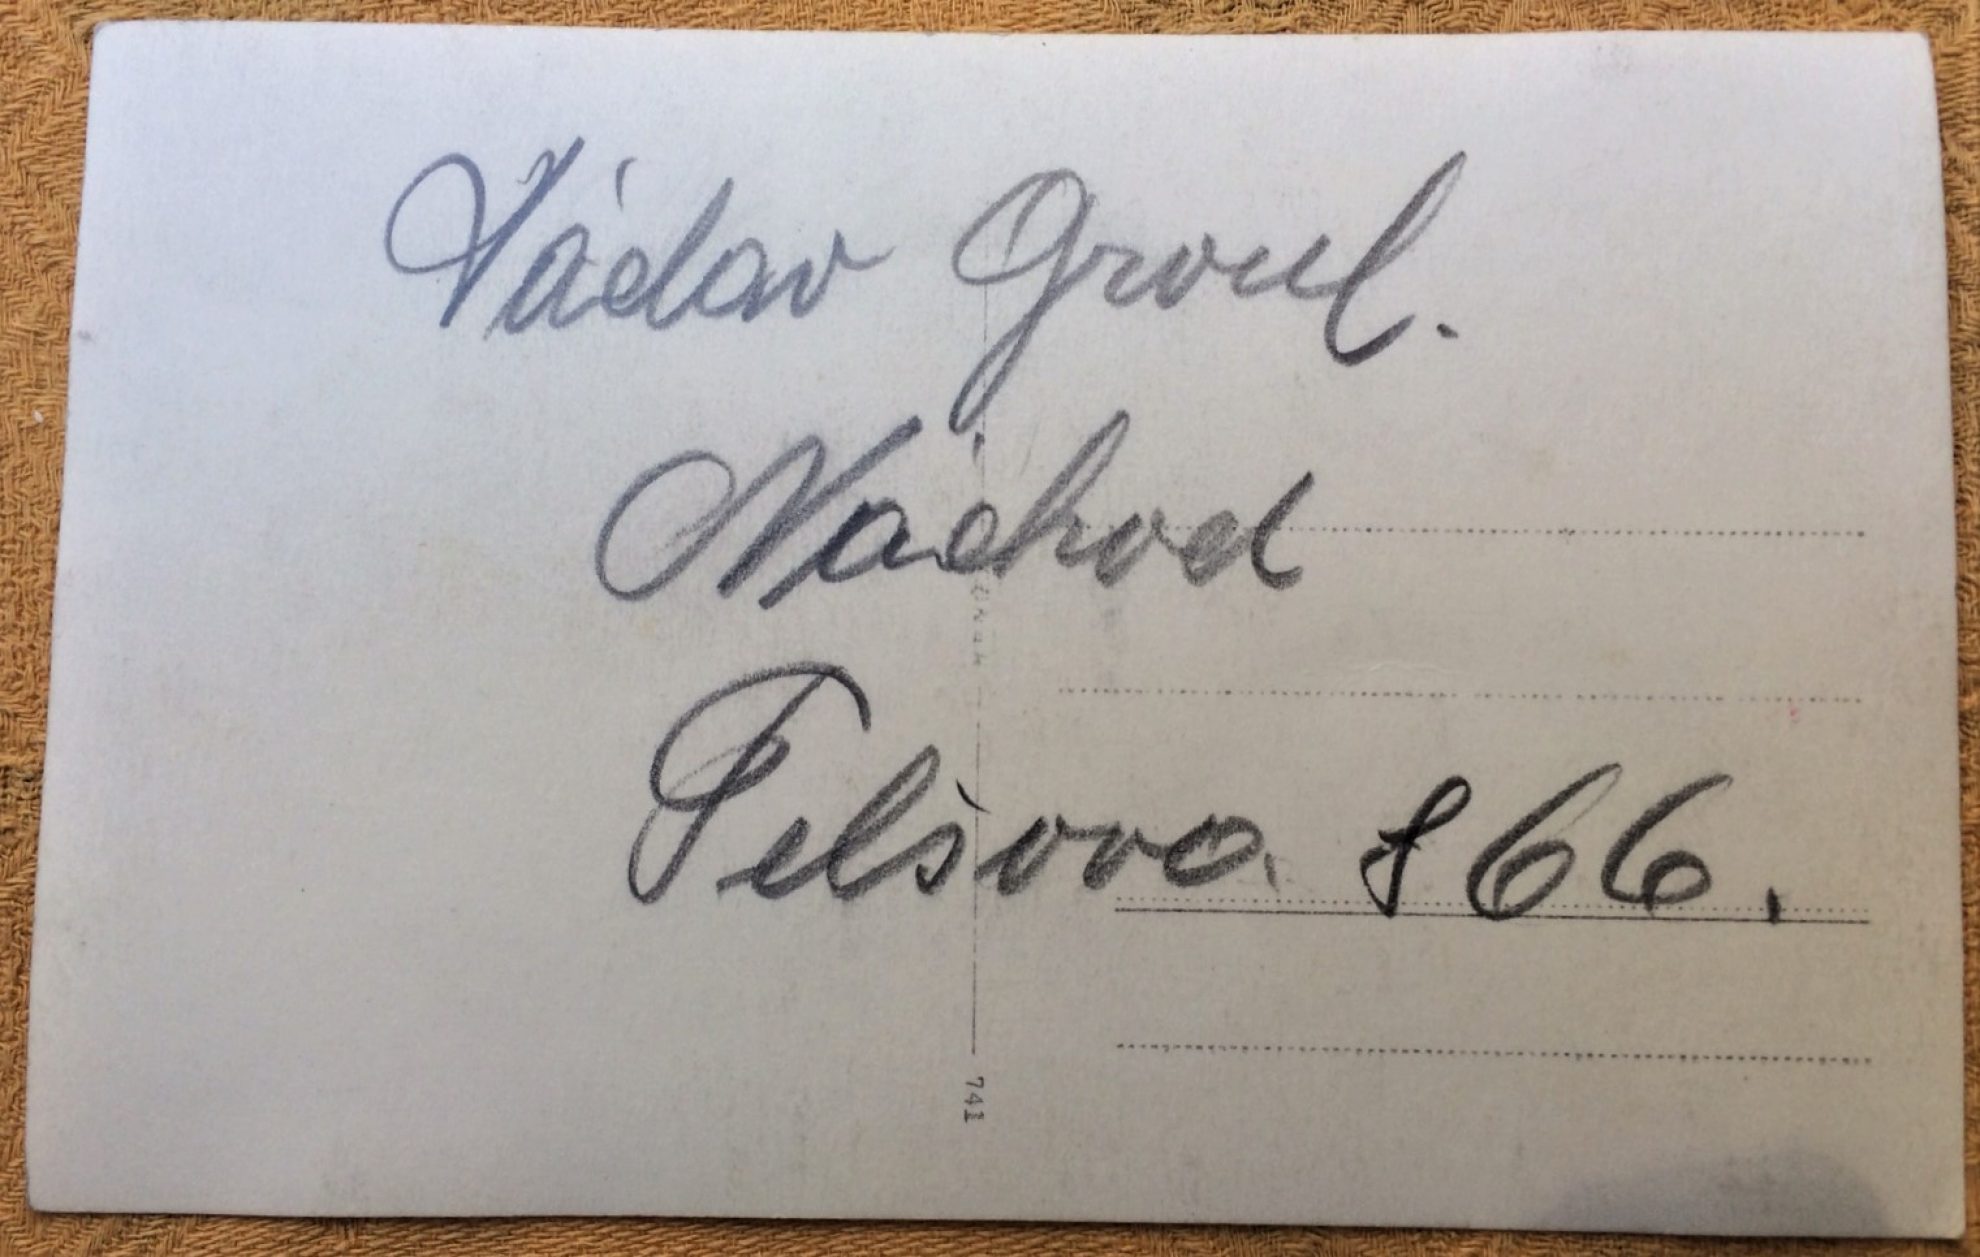 Václav Groul.
Náchod
Pelšova. 866.
741